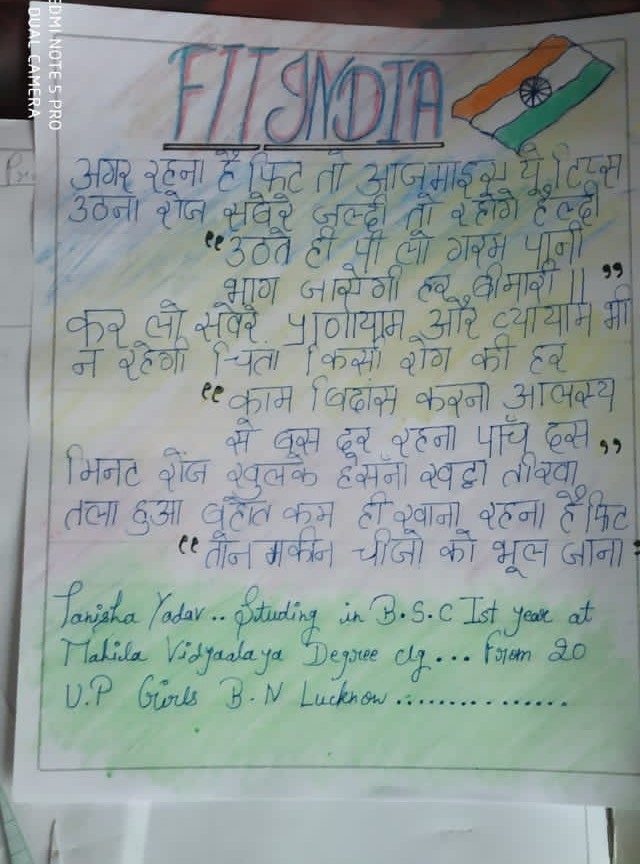 REDMI NOTE 5 PRO
DUAL CAMERA
FIT INDIA
अगर रहना है फिट तो आजमाइए ये टिप्स
उठना रोज सवेरे जल्दी तो रहोगे हैल्दी
“ उठते ही पी लो गरम पानी
भाग जायेगी हर बीमारी || ”
कर लो सवेरे प्राणायाम और व्यायाम भी
न रहेगी चिंता किसी रोग की हर
“ काम बिदांस करना आलस्य
से बस दूर रहना पाँच दस ”
मिनट रोज खुलके हँसना खट्टा तीखा
तला हुआ बहोत कम ही खाना रहना है फिट
“ तो नमकीन चीजो को भूल जाना
Tanisha Yadav.. Studing in B.S.C Ist year at
Mahila Vidyaalaya Degree clg... From 20
U.P Girls B.N Lucknow ...............